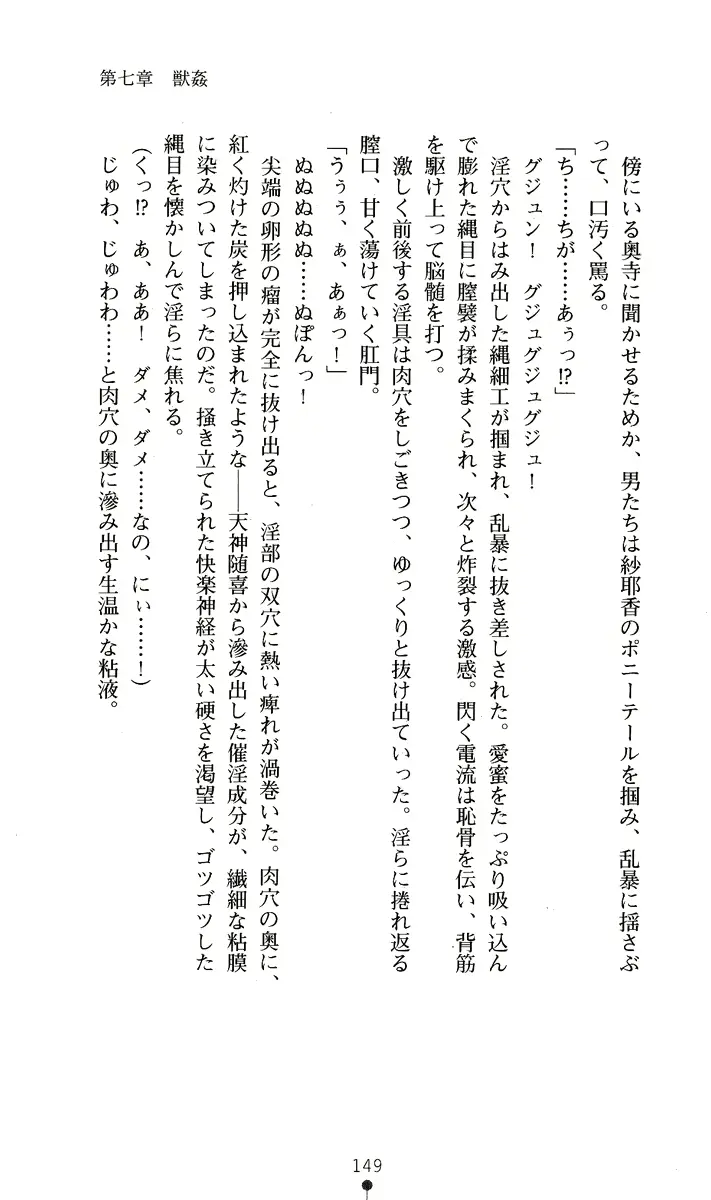 第七章　獣姦
傍にいる奥寺に聞かせるためか、男たちは紗耶香のポニーテールを掴み、乱暴に揺さぶ
って、口汚く罵る。
「ち……ちが……あぅっ!?」
グジュン！　グジュグジュグジュ！
淫穴からはみ出した縄細工が掴まれ、乱暴に抜き差しされた。愛蜜をたっぷり吸い込ん
で膨れた縄目に膣襞が揉みまくられ、次々と炸裂する激感。閃く電流は恥骨を伝い、背筋
を駆け上って脳髄を打つ。
激しく前後する淫具は肉穴をしごきつつ、ゆっくりと抜け出ていった。淫らに捲れ返る
膣口、甘く蕩けていく肛門。
「うぅぅ、ぁ、あぁっ！」
ぬぬぬぬぬ……ぬぽんっ！
尖端の卵形の瘤が完全に抜け出ると、淫部の双穴に熱い痺れが渦巻いた。肉穴の奥に、
紅く灼けた炭を押し込まれたような――天神随喜から滲み出した催淫成分が、繊細な粘膜
に染みついてしまったのだ。掻き立てられた快楽神経が太い硬さを渇望し、ゴツゴツした
縄目を懐かしんで淫らに焦れる。
（くっ!?　あ、ああ！　ダメ、ダメ……なの、にぃ……！）
じゅわ、じゅわわ……と肉穴の奥に滲み出す生温かな粘液。
149